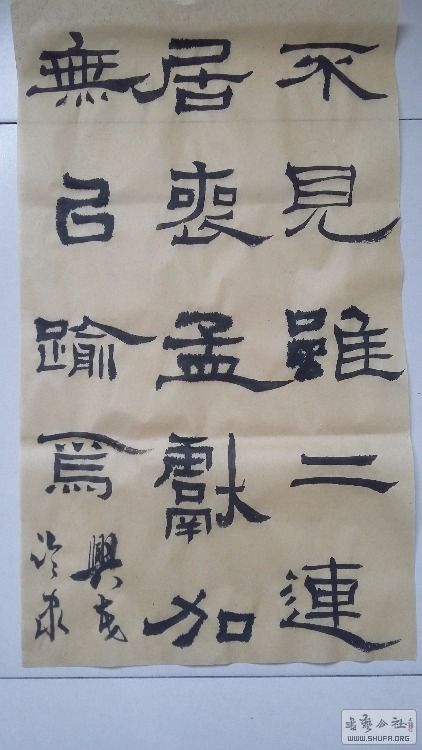 不見雖二連
居喪孟獻加
無㠯踰焉
興
书艺公社
WWW.SHUFA.ORG